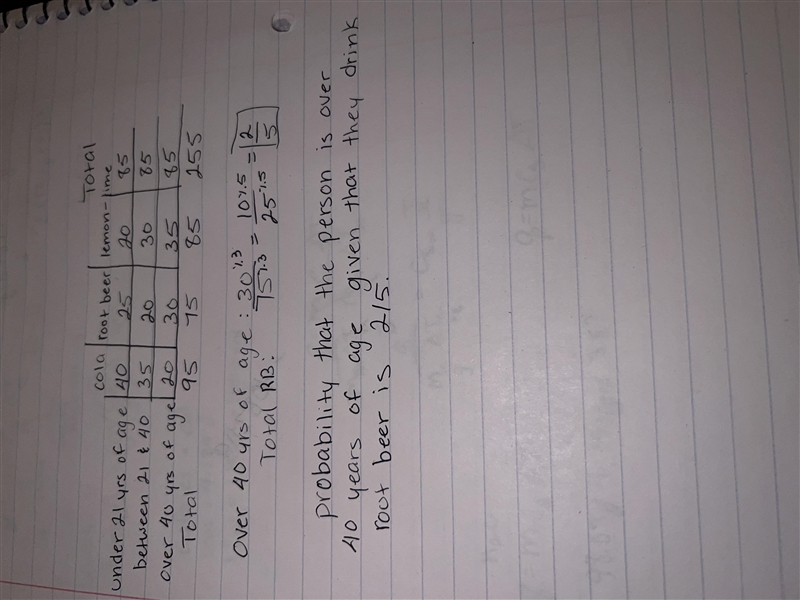 cola | root beer | lemon-lime | Total
under 21 yrs of age | 40 | 25 | 20 | 85
between 21 & 40 | 35 | 20 | 30 | 85
over 40 yrs of age | 20 | 30 | 35 | 85
Total 95 75 85 255
Over 40 yrs of age : 30 ÷3 = 10 ÷5 = 2
Total RB: 75 ÷3 25 ÷5 5
probability that the person is over
40 years of age given that they drink
root beer is 2/5.